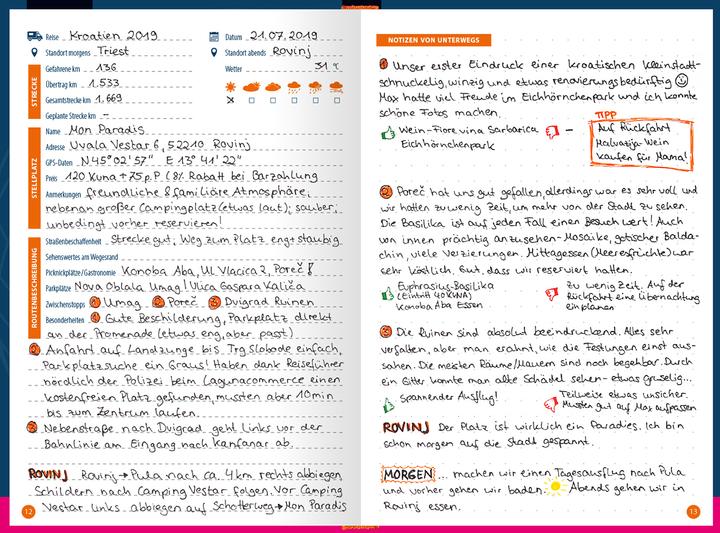 Reise Kroatien 2019
Datum 21.07.2019
Standort morgens Triest
Standort abends Rovinj
Gefahrene km 136
Wetter 31 °C
Übertrag km 1.533
Gesamtstrecke km 1.669
Geplante Strecke km –
STRECKE
Name Mon Paradis
Adresse Uvala Vestar 6, 52210 Rovinj
GPS-Daten N 45° 02' 57" E 13° 41' 22"
Preis 120 Kuna + 75 p.P. (8% Rabatt bei Barzahlung
Anmerkungen freundliche & familiäre Atmosphäre,
nebenan großer Campingplatz (etwas laut); sauber;
unbedingt vorher reservieren!
STELLPLATZ
Straßenbeschaffenheit Strecke gut, Weg zum Platz eng + staubig
Sehenswertes am Wegesrand
Picknickplätze/Gastronomie Konoba Aba, Ul Vlacica 2, Poreč!
Parkplätze Nova Obala Umag! Ulica Gaspara Kaliča
Zwischenstopps 1 Umag 2 Poreč 3 Dvigrad Ruinen
Besonderheiten 1 Gute Beschilderung, Parkplatz direkt
an der Promenade (etwas eng, aber passt)
ROUTENBESCHREIBUNG
2 Anfahrt auf Landzunge bis Trg Slobode einfach,
Parkplatzsuche ein Graus! Haben dank Reiseführer
nördlich der Polizei beim Lagunacommerce einen
kostenfreien Platz gefunden, mussten aber 10min
bis zum Zentrum laufen.
3 Nebenstraße nach Dvigrad geht links vor der
Bahnlinie am Eingang nach Kanfanar ab.
ROVINJ Rovinj → Pula nach ca. 4km rechts abbiegen
Schildern nach Camping Vestar folgen. Vor Camping
Vestar links abbiegen auf Schotterweg → Mon Paradis
12
NOTIZEN VON UNTERWEGS
1 Unser erster Eindruck einer kroatischen Kleinstadt-
schnuckelig, winzig und etwas renovierungsbedürftig
Max hatte viel Freude im Eichhörnchenpark und ich konnte
schöne Fotos machen.
Wein-Fiore vina Sarbarica
Eichhörnchenpark
–
TIPP
Auf Rückfahrt
Malvazija-Wein
kaufen für Mama!
2 Poreč hat uns gut gefallen, allerdings war es sehr voll und
wir hatten zu wenig Zeit, um mehr von der Stadt zu sehen.
Die Basilika ist auf jeden Fall einen Besuch wert! Auch
von innen prächtig anzusehen- Mosaike, gotischer Balda-
chin, viele Verzierungen. Mittagessen (Meeresfrüchte) war
sehr köstlich. Gut, dass wir reserviert hatten.
Euphrasius-Basilika
(Eintritt 40 KUNA)
Konoba Aba Essen
Zu wenig Zeit. Auf der
Rückfahrt eine Übernachtung
einplanen
3 Die Ruinen sind absolut beeindruckend. Alles sehr
verfallen, aber man erahnt, wie die Festungen einst aus-
sahen. Die meisten Räume/Mauern sind noch begehbar. Durch
ein Gitter konnte man alte Schädel sehen- etwas gruselig...
Spannender Ausflug!
Teilweise etwas unsicher.
Mussten gut auf Max aufpassen
ROVINJ Der Platz ist wirklich ein Paradies. Ich bin
schon morgen auf die Stadt gespannt.
MORGEN ... machen wir einen Tagesausflug nach Pula
und vorher gehen wir baden. Abends gehen wir in
Rovinj essen.
13